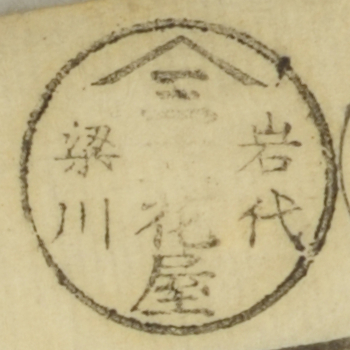 岩代
三
花屋
梁川